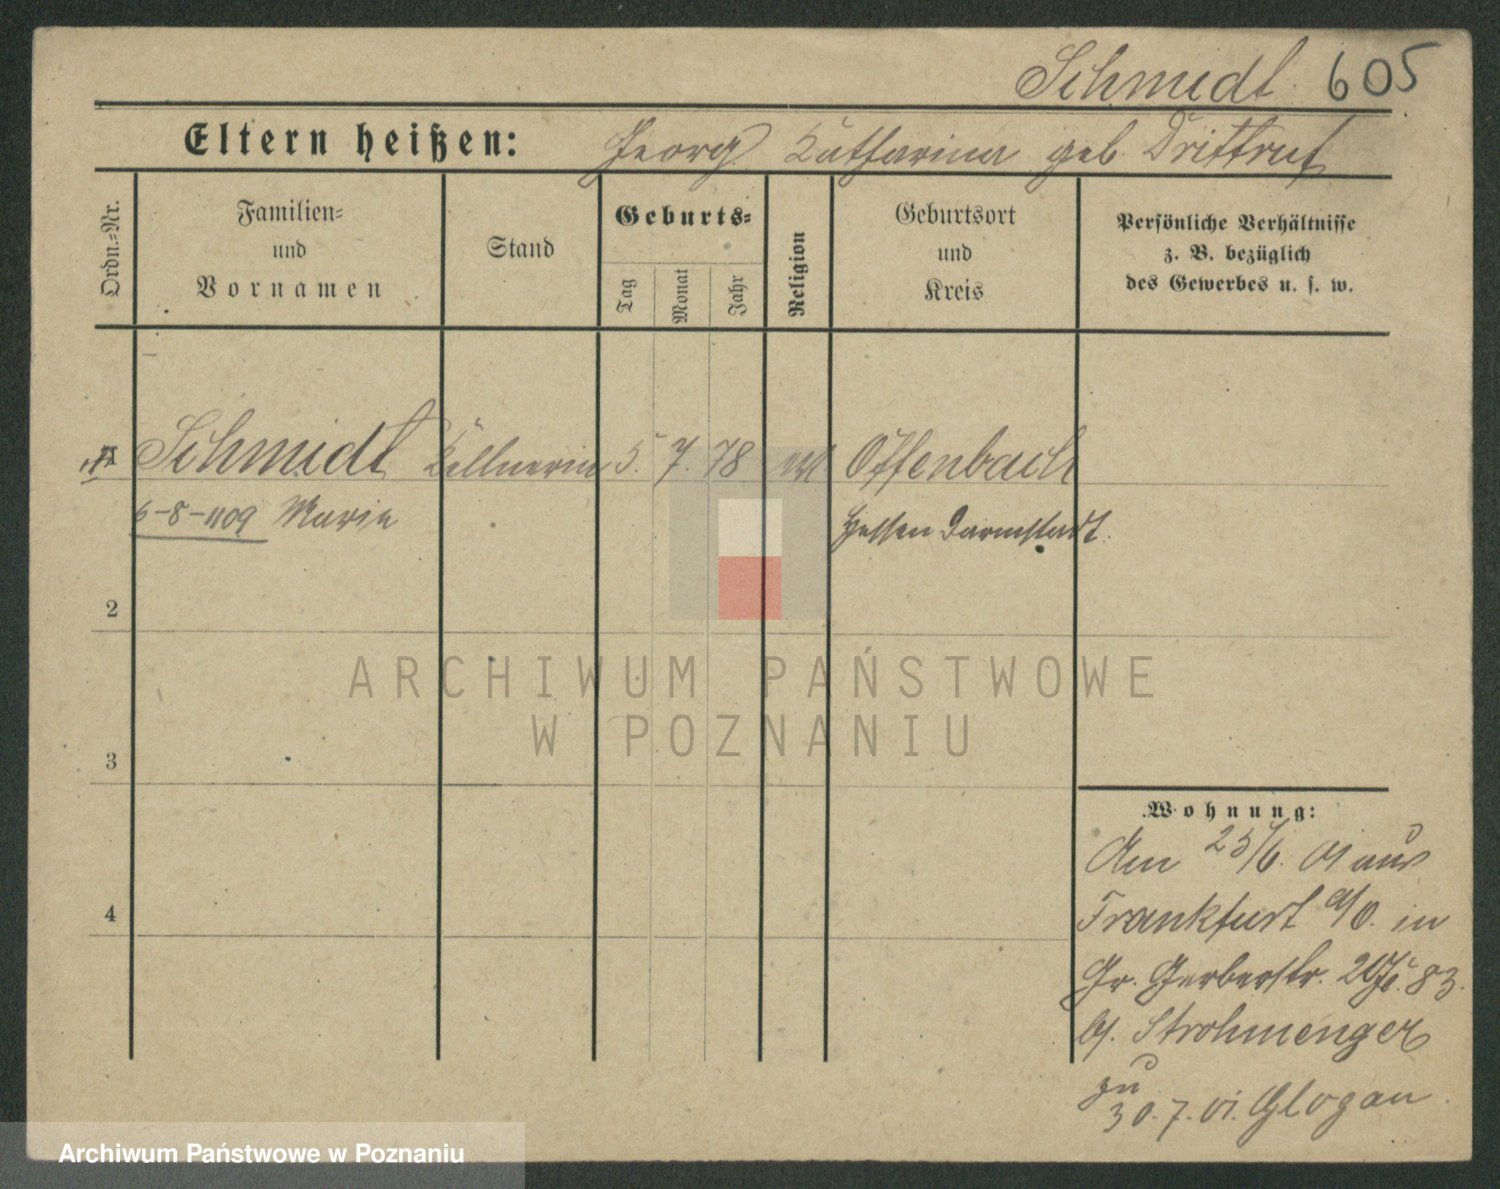 Schmidt 605
Eltern heißen: Georg Katharina geb. Drittruf
Ordn.-Nr.
Familien-
und
Vornamen
Stand
Geburts-
Tag
Monat
Jahr
Religion
Geburtsort
und
Kreis
Persönliche Verhältnisse
z. B. bezüglich
des Gewerbes u. s. w.
Schmidt Kellnerin 5. 7. 78 Offenbach
Marie Hessen Darmstadt.
2
3
4
ARCHIWUM PAŃSTWOWE
W POZNANIU
Wohnung:
Am 25/6. 01 aus
Frankfurt a/O. in
Gr. Gerberstr. 83.
b/. Strohmenger
zu
30.7.01. Glogau.
Archiwum Państwowe w Poznaniu